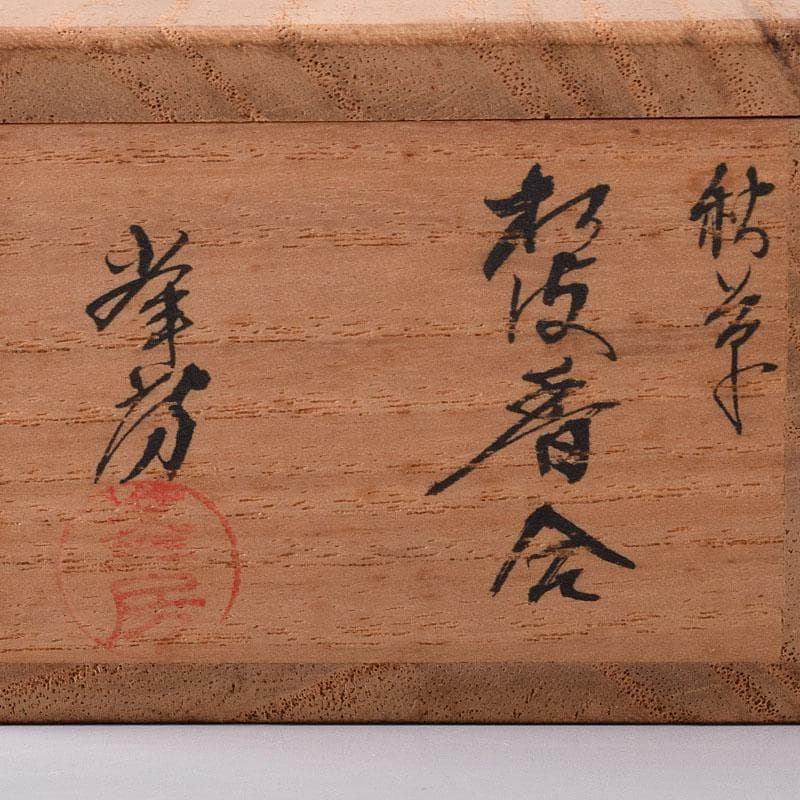 秋草
松皮香合
峯芳